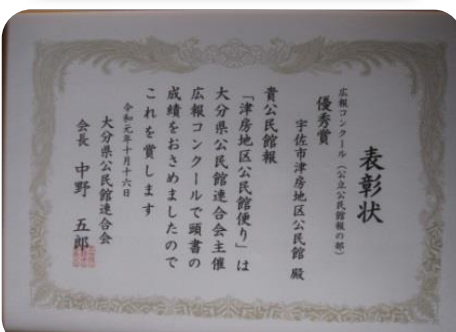 表彰状
広報コンクール（公立公民館報の部）
優秀賞
宇佐市津房地区公民館 殿
貴公民館報
「津房地区公民館便り」は
大分県公民館連合会主催
広報コンクールで頭書の
成績をおさめましたので
これを賞します
令和元年十月十六日
大分県公民館連合会
会長 中野 五郎